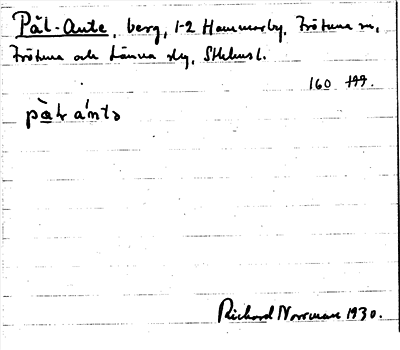 Pål-Ante, berg, 1-2 Hammarby, Frötuna sn,
Frötuna och Länna sky, Sthlms l.
160
pàl án
Richard Norrman 1930.